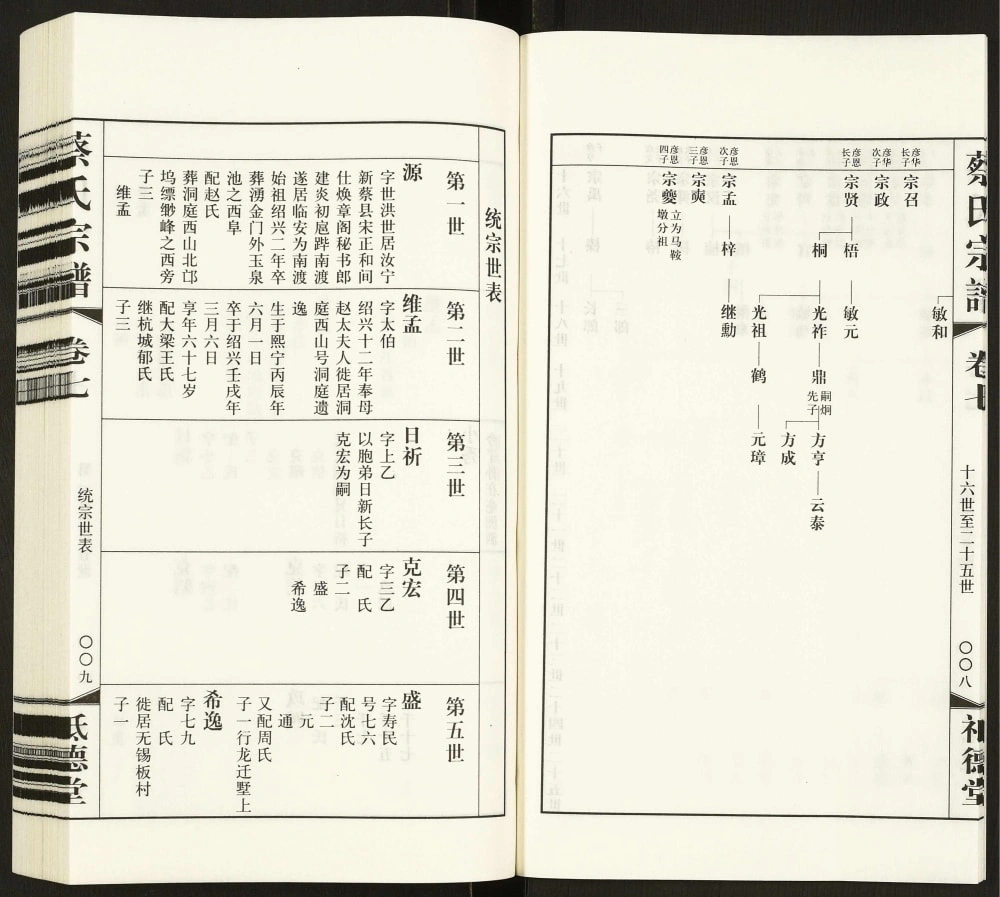 蔡氏宗谱
卷七
十六世至二十五世
〇〇八
祗德堂
敏和
彦华
长子
宗召
彦华
次子
宗政
彦恩
长子
宗贤
梧
敏元
桐
光祚
鼎
嗣炯
先子
方亨
云泰
方成
光祖
鹤
元璋
彦恩
次子
宗孟
梓
继勳
彦恩
三子
宗奭
彦恩
四子
宗夔
立为马鞍
墩分祖
统宗世表
第一世
源
字世洪世居汝宁
新蔡县宋正和间
仕焕章阁秘书郎
建炎初扈跸南渡
遂居临安为南渡
始祖绍兴二年卒
葬湧金门外玉泉
池之西阜
配赵氏
葬洞庭西山北邙
坞缥缈峰之西旁
子三
维孟
第二世
维孟
字太伯
绍兴十二年奉母
赵太夫人徙居洞
庭西山号洞庭遗
逸
生于熙宁丙辰年
六月一日
卒于绍兴壬戌年
三月六日
享年六十七岁
配大梁王氏
继杭城郁氏
子三
第三世
日祈
字上乙
以胞弟日新长子
克宏为嗣
第四世
克宏
字三乙
配 氏
子二
盛
希逸
第五世
盛
字寿民
号七六
配沈氏
子二
元
通
又配周氏
子一行龙迁墅上
希逸
字七九
配 氏
徙居无锡板村
子一
蔡氏宗谱
卷七
统宗世表
〇〇九
祗德堂